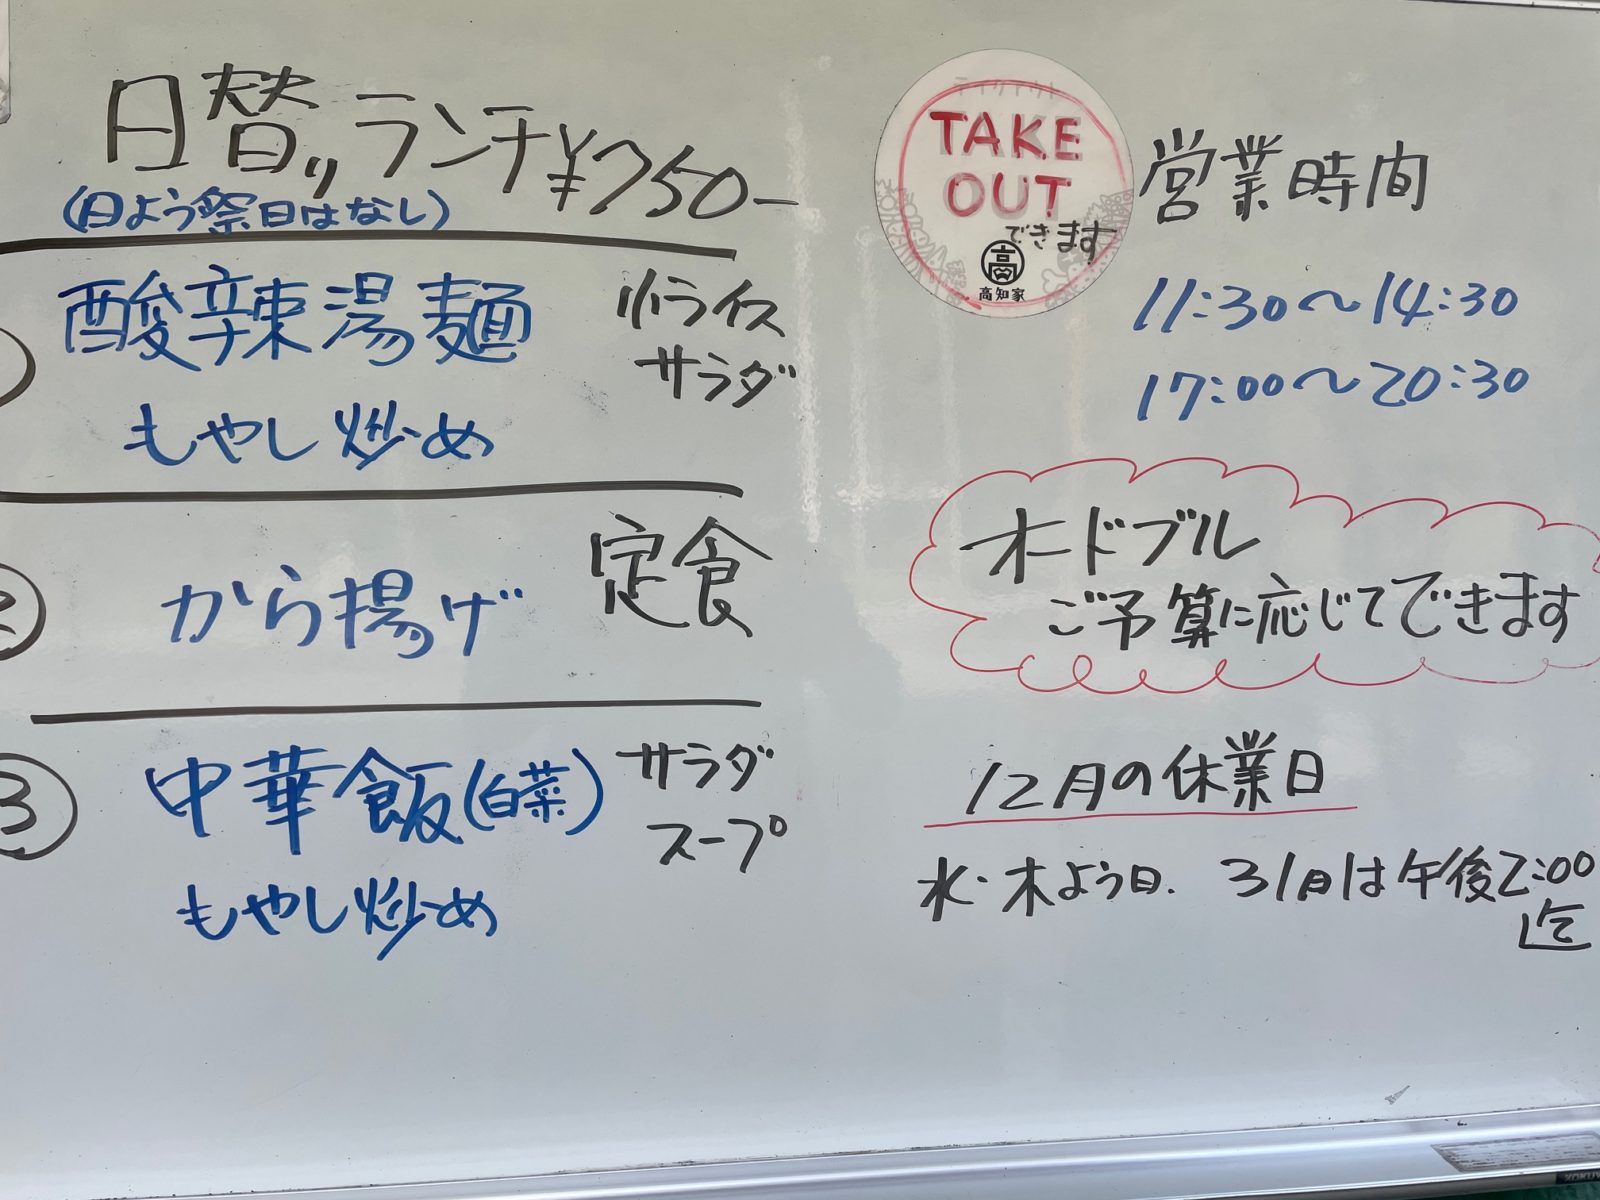 日替りランチ¥750-
(日よう祭日はなし)
酸辣湯麺
小ライス
サラダ
もやし炒め
から揚げ
定食
3
中華飯(白菜)
サラダ
スープ
もやし炒め
テイクアウト
TAKE
OUT
できます
高
高知家
営業時間
11:30〜14:30
17:00〜20:30
オードブル
ご予算に応じてできます
12月の休業日
水・木よう日. 31日は午後2:00
迄